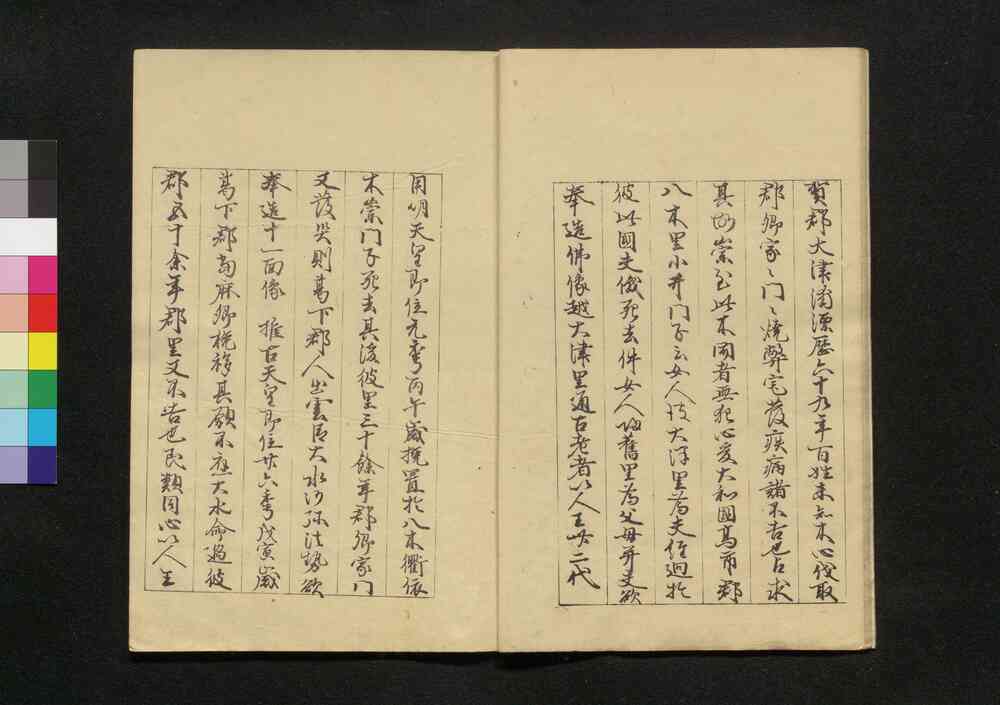 賀郡大津浦漂歴六十九年百姓未知木心伐取
郡郷家〻門〻焼弊宅莈疾病諸不吉也占求
其物崇至此木聞者無犯心爰大和國高市郡
八木里小井門子云女人彼大津里為夫經廻於
彼此國夫俄死去件女人歸舊里為父母并夫欲
奉造佛像越大津里通古老者以人王卅二代
用明天皇即位元季丙午歳挽置於八木衢依
木崇門子死去其後彼里三十餘年郡郷家門
又發災則葛下郡人出雲臣大水沙弥法勢欲
奉造十一面像　推古天皇即位廿六季戊寅歳
葛下郡當麻郷挽移其願不應大水命過彼
郡五十余年郡里又不吉也民類同心以人王